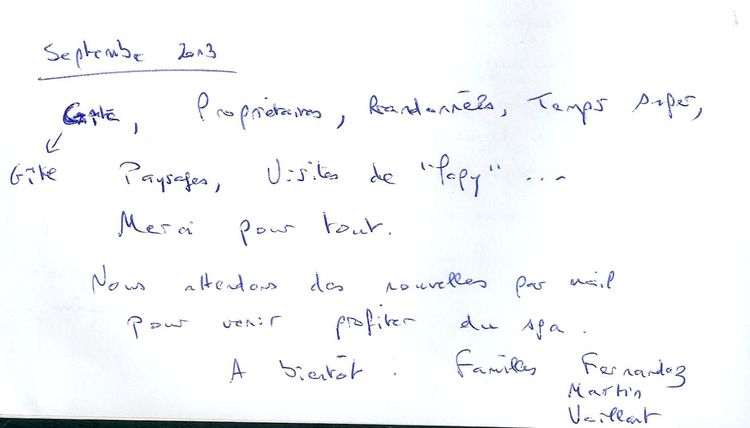 Septembre 2013
Gîte, Propriétaires, Randonnées, Temps super,
Gîte Paysages, Visites de "Papy" ...
Merci pour tout.
Nous attendons des nouvelles par mail
pour venir profiter du spa.
A bientôt. Familles Fernandez
Martin
Vaillant